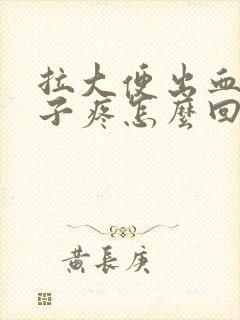 拉大便出血
子疼怎麼回
黄長庚